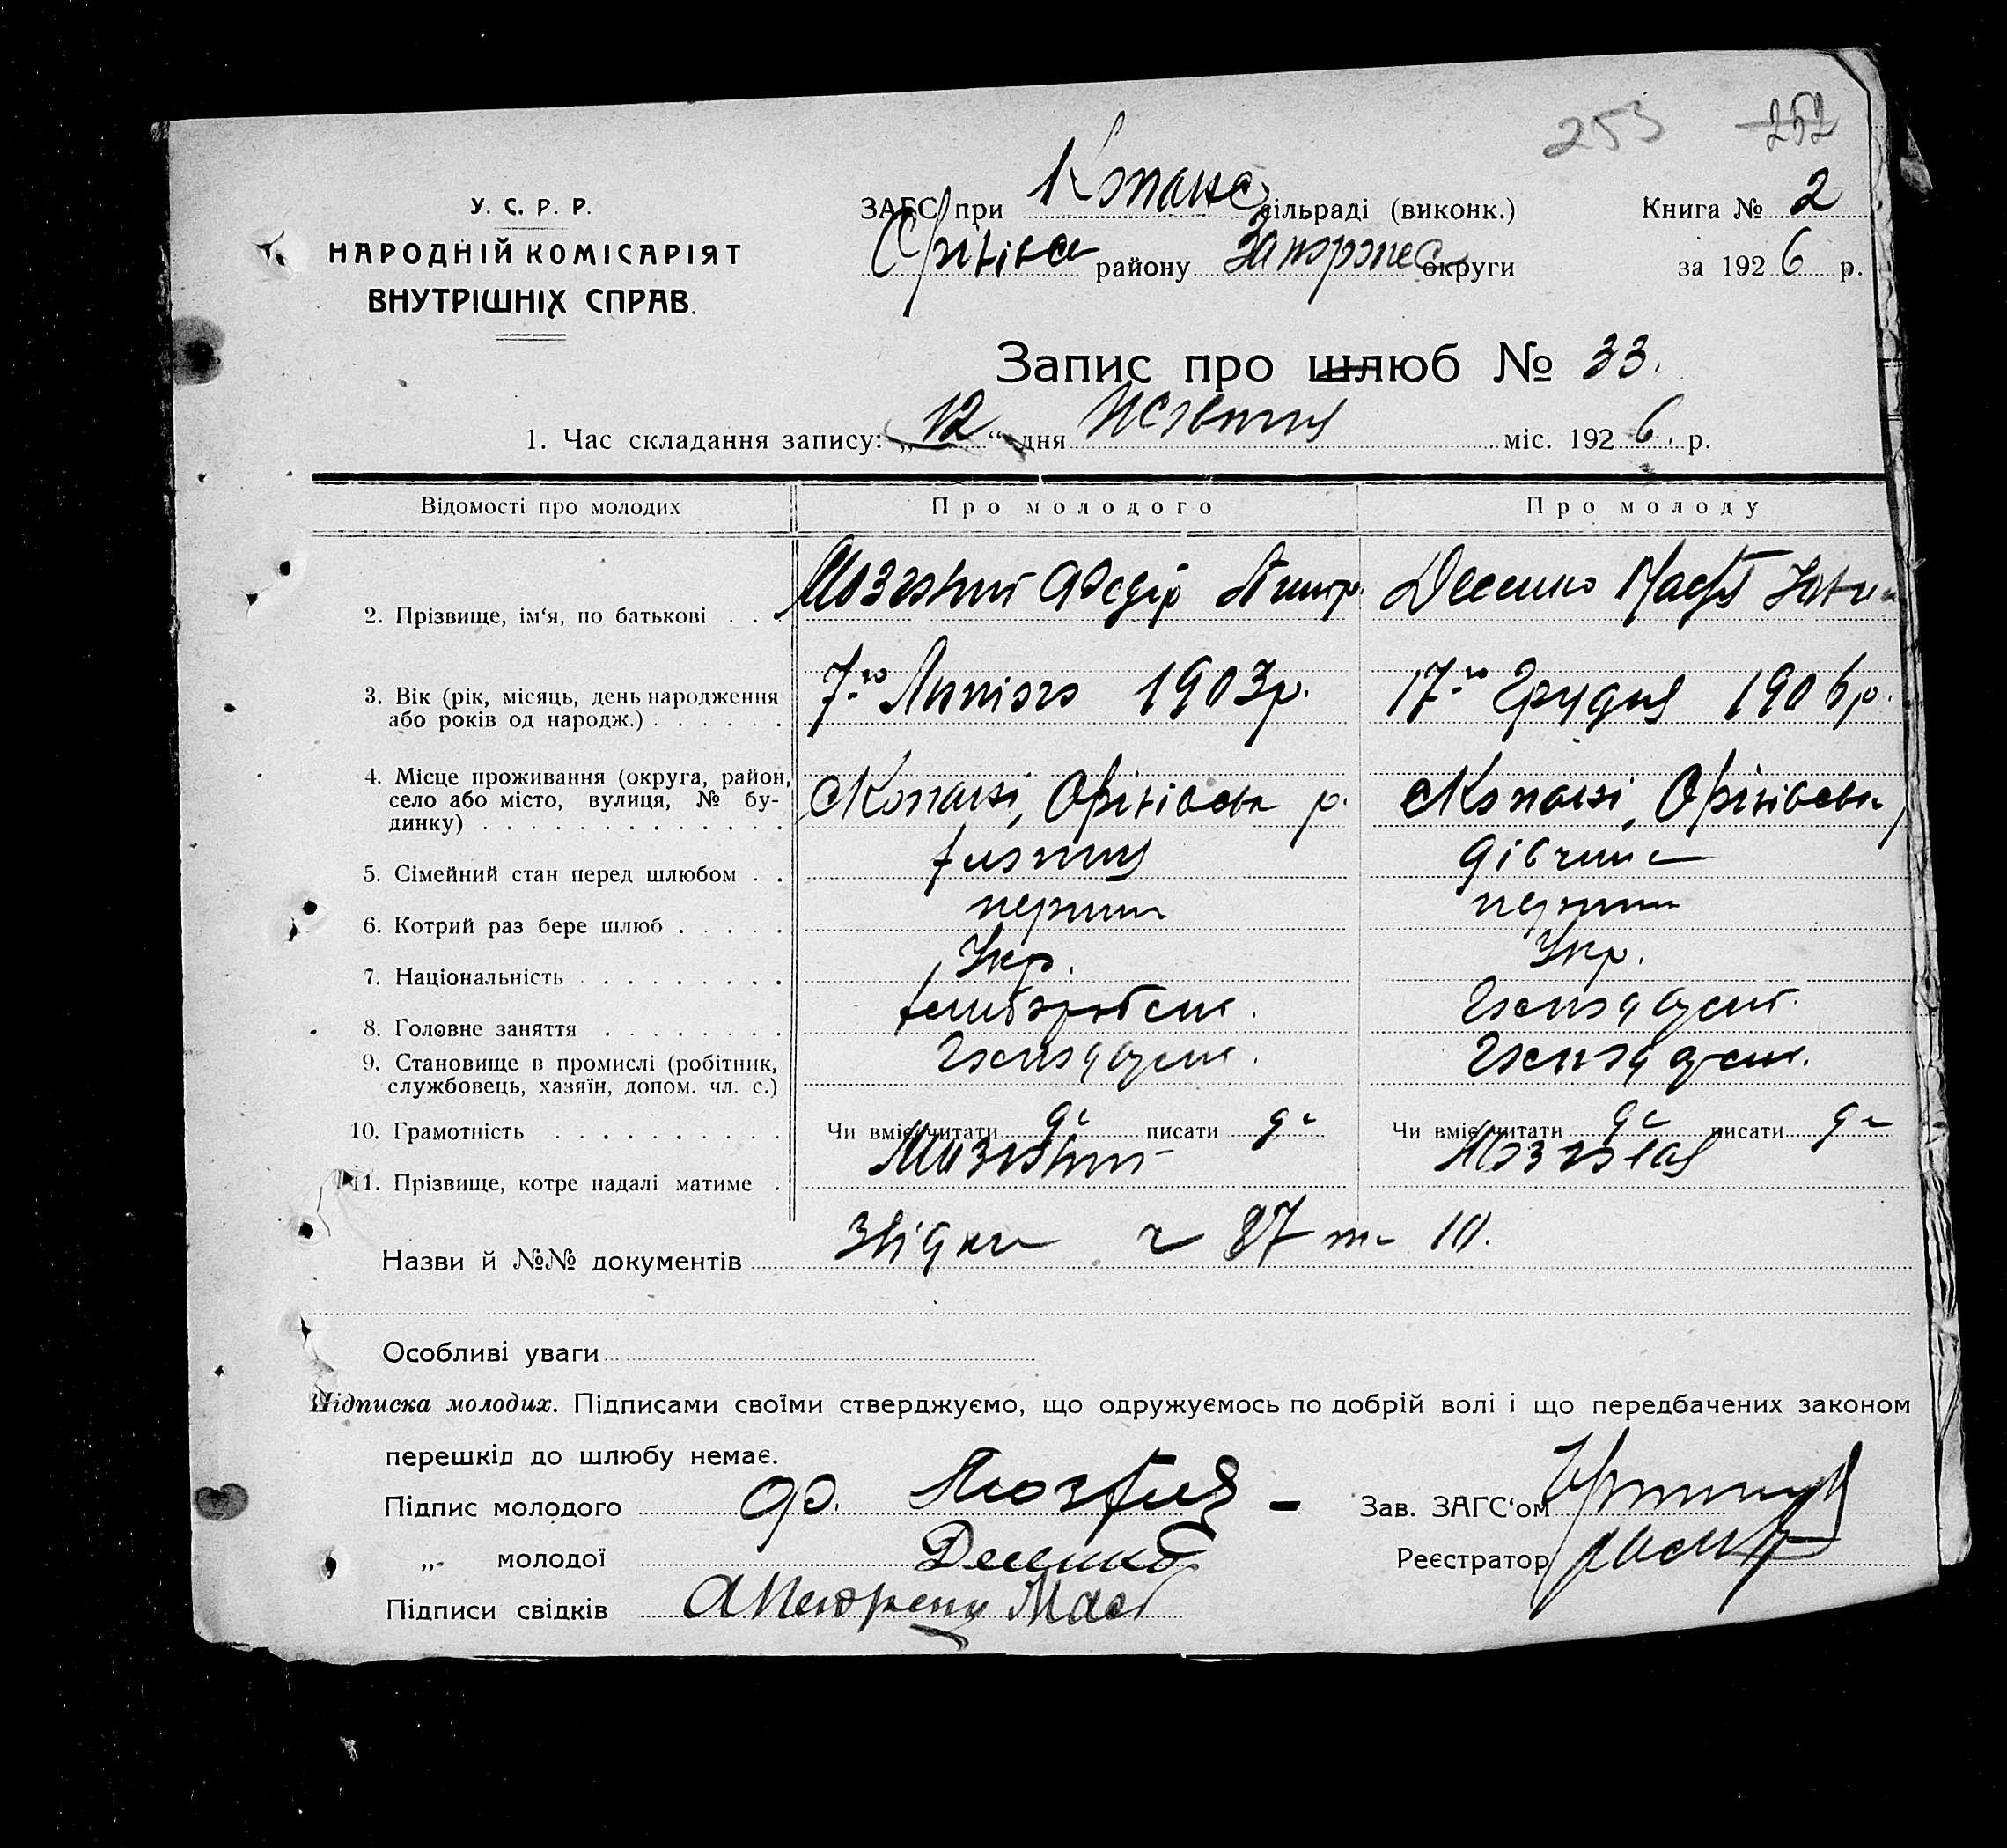 253 262
У. С. Р. Р.
НАРОДНІЙ КОМІСАРІЯТ
ВНУТРІШНІХ СПРАВ.
ЗАГС при Копанс сільраді (виконк.) Книга № 2
району Запоріжс округи за 1926 р.
Запис про шлюб № 33.
1. Час складання запису: „12“ дня Жовтня міс. 1926 р.
Відомості про молодих Про молодого Про молоду
2. Прізвище, ім‘я, по батькові . . . Мозговий Федір Дмитр. Десенко
3. Вік (рік, місяць, день народження
або років од народж.) . . . . . . 7-го Липня 1903р. 17-го Грудня 1906р.
4. Місце проживання (округа, район,
село або місто, вулиця, № бу-
динку) . . . . . . . . . . . . . с Копані, Оріхівськ р. с Копані, Оріхівськ р
5. Сімейний стан перед шлюбом . . дівчина
6. Котрий раз бере шлюб . . . . . перший перший
7. Національність . . . . . . . . . Укр. Укр.
8. Головне заняття . . . . . . . . хлібороб
9. Становище в промислі (робітник,
службовець, хазяїн, допом. чл. с.)
10. Грамотність . . . . . . . . . . Чи вміє читати да писати да Чи вміє читати да писати да
11. Прізвище, котре надалі матиме . Мозговий Мозговая
Назви й №№ документів Звідки ч 87 та 10.
Особливі уваги
Підписка молодих. Підписами своїми стверджуємо, що одружуємось по добрій волі і що передбачених законом
перешкід до шлюбу немає.
Підпис молодого Ф. Зав. ЗАГС‘ом
„ молодої Десенко Реєстратор
Підписи свідків